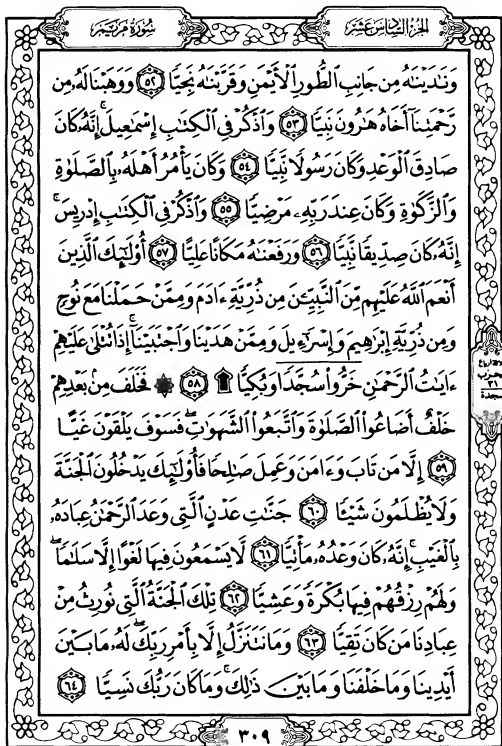 الجزء السادس عشر
سورة مريم
وَنَٰدَيْنَٰهُ مِن جَانِبِ ٱلطُّورِ ٱلْأَيْمَنِ وَقَرَّبْنَٰهُ نَجِيًّا ٥٢ وَوَهَبْنَا لَهُۥ مِن
رَّحْمَتِنَآ أَخَاهُ هَٰرُونَ نَبِيًّا ٥٣ وَٱذْكُرْ فِى ٱلْكِتَٰبِ إِسْمَٰعِيلَ ۚ إِنَّهُۥ كَانَ
صَادِقَ ٱلْوَعْدِ وَكَانَ رَسُولًا نَّبِيًّا ٥٤ وَكَانَ يَأْمُرُ أَهْلَهُۥ بِٱلصَّلَوٰةِ
وَٱلزَّكَوٰةِ وَكَانَ عِندَ رَبِّهِۦ مَرْضِيًّا ٥٥ وَٱذْكُرْ فِى ٱلْكِتَٰبِ إِدْرِيسَ ۚ
إِنَّهُۥ كَانَ صِدِّيقًا نَّبِيًّا ٥٦ وَرَفَعْنَٰهُ مَكَانًا عَلِيًّا ٥٧ أُو۟لَٰٓئِكَ ٱلَّذِينَ
أَنْعَمَ ٱللَّهُ عَلَيْهِم مِّنَ ٱلنَّبِيِّۦنَ مِن ذُرِّيَّةِ ءَادَمَ وَمِمَّنْ حَمَلْنَا مَعَ نُوحٍ
وَمِن ذُرِّيَّةِ إِبْرَٰهِيمَ وَإِسْرَٰٓءِيلَ وَمِمَّنْ هَدَيْنَا وَٱجْتَبَيْنَآ ۚ إِذَا تُتْلَىٰ عَلَيْهِمْ
ءَايَٰتُ ٱلرَّحْمَٰنِ خَرُّوا۟ سُجَّدًا وَبُكِيًّا ۩ ٥٨ ۞ فَخَلَفَ مِنۢ بَعْدِهِمْ
خَلْفٌ أَضَاعُوا۟ ٱلصَّلَوٰةَ وَٱتَّبَعُوا۟ ٱلشَّهَوَٰتِ ۖ فَسَوْفَ يَلْقَوْنَ غَيًّا
٥٩ إِلَّا مَن تَابَ وَءَامَنَ وَعَمِلَ صَٰلِحًا فَأُو۟لَٰٓئِكَ يَدْخُلُونَ ٱلْجَنَّةَ
وَلَا يُظْلَمُونَ شَيْـًٔا ٦٠ جَنَّٰتِ عَدْنٍ ٱلَّتِى وَعَدَ ٱلرَّحْمَٰنُ عِبَادَهُۥ
بِٱلْغَيْبِ ۚ إِنَّهُۥ كَانَ وَعْدُهُۥ مَأْتِيًّا ٦١ لَّا يَسْمَعُونَ فِيهَا لَغْوًا إِلَّا سَلَٰمًا ۖ
وَلَهُمْ رِزْقُهُمْ فِيهَا بُكْرَةً وَعَشِيًّا ٦٢ تِلْكَ ٱلْجَنَّةُ ٱلَّتِى نُورِثُ مِنْ
عِبَادِنَا مَن كَانَ تَقِيًّا ٦٣ وَمَا نَتَنَزَّلُ إِلَّا بِأَمْرِ رَبِّكَ ۖ لَهُۥ مَا بَيْنَ
أَيْدِينَا وَمَا خَلْفَنَا وَمَا بَيْنَ ذَٰلِكَ ۚ وَمَا كَانَ رَبُّكَ نَسِيًّا ٦٤
حزب
٣١
سجدة
٣٠٩